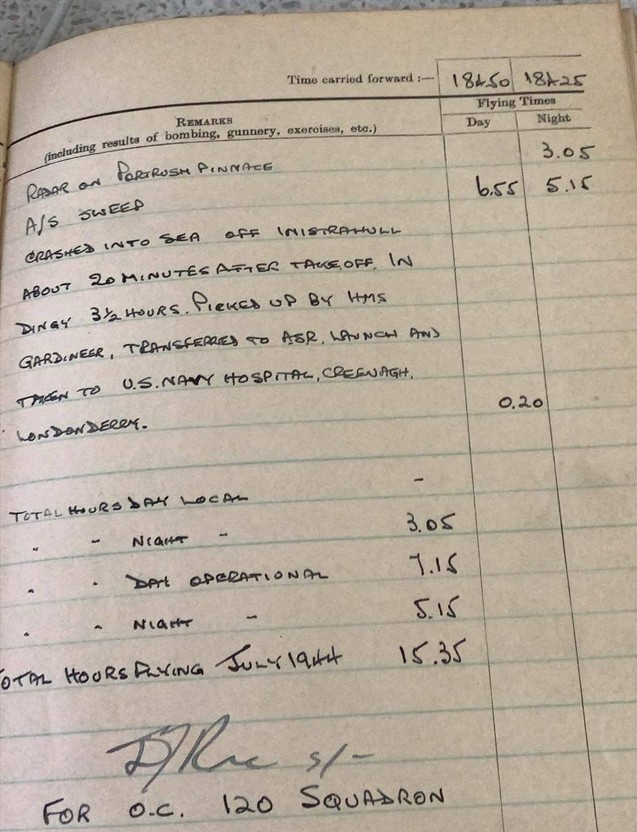 Time carried forward :— 184.50 184.25
Flying Times
REMARKS
(including results of bombing, gunnery, exercises, etc.) Day Night
RADAR ON PORTRUSH PINNACE 3.05
A/S SWEEP 6.55 5.15
CRASHED INTO SEA OFF INISTRAHULL
ABOUT 20 MINUTES AFTER TAKE OFF. IN
DINGY 3½ HOURS. PICKED UP BY HMS
GARDINEER, TRANSFERRED TO ASR. LAUNCH AND
TAKEN TO U.S. NAVY HOSPITAL, CREENAGH,
LONDONDERRY. 0.20
TOTAL HOURS DAY LOCAL -
" " NIGHT " 3.05
" " DAY OPERATIONAL 7.15
" " NIGHT " 5.15
TOTAL HOURS FLYING JULY 1944 15.35
S/-
FOR O.C. 120 SQUADRON